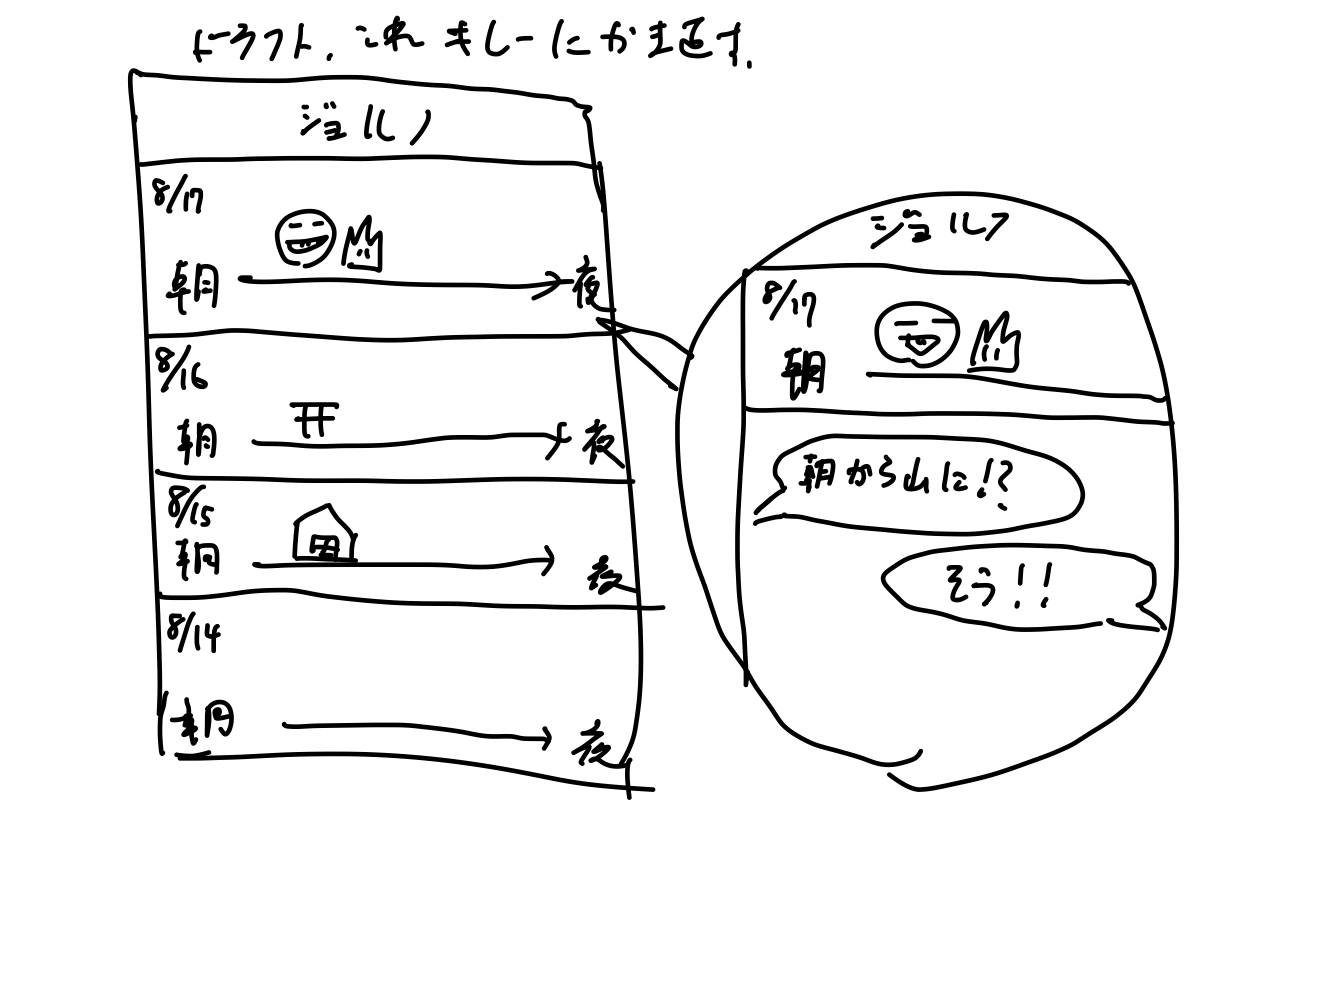 ドラフト.これをしーにかき直す.
ジョルノ
8/17
朝
夜
8/16
朝
夜
8/15
朝
夜
8/14
朝
夜
ジョルノ
8/17
朝
朝から山に!?
そう!!